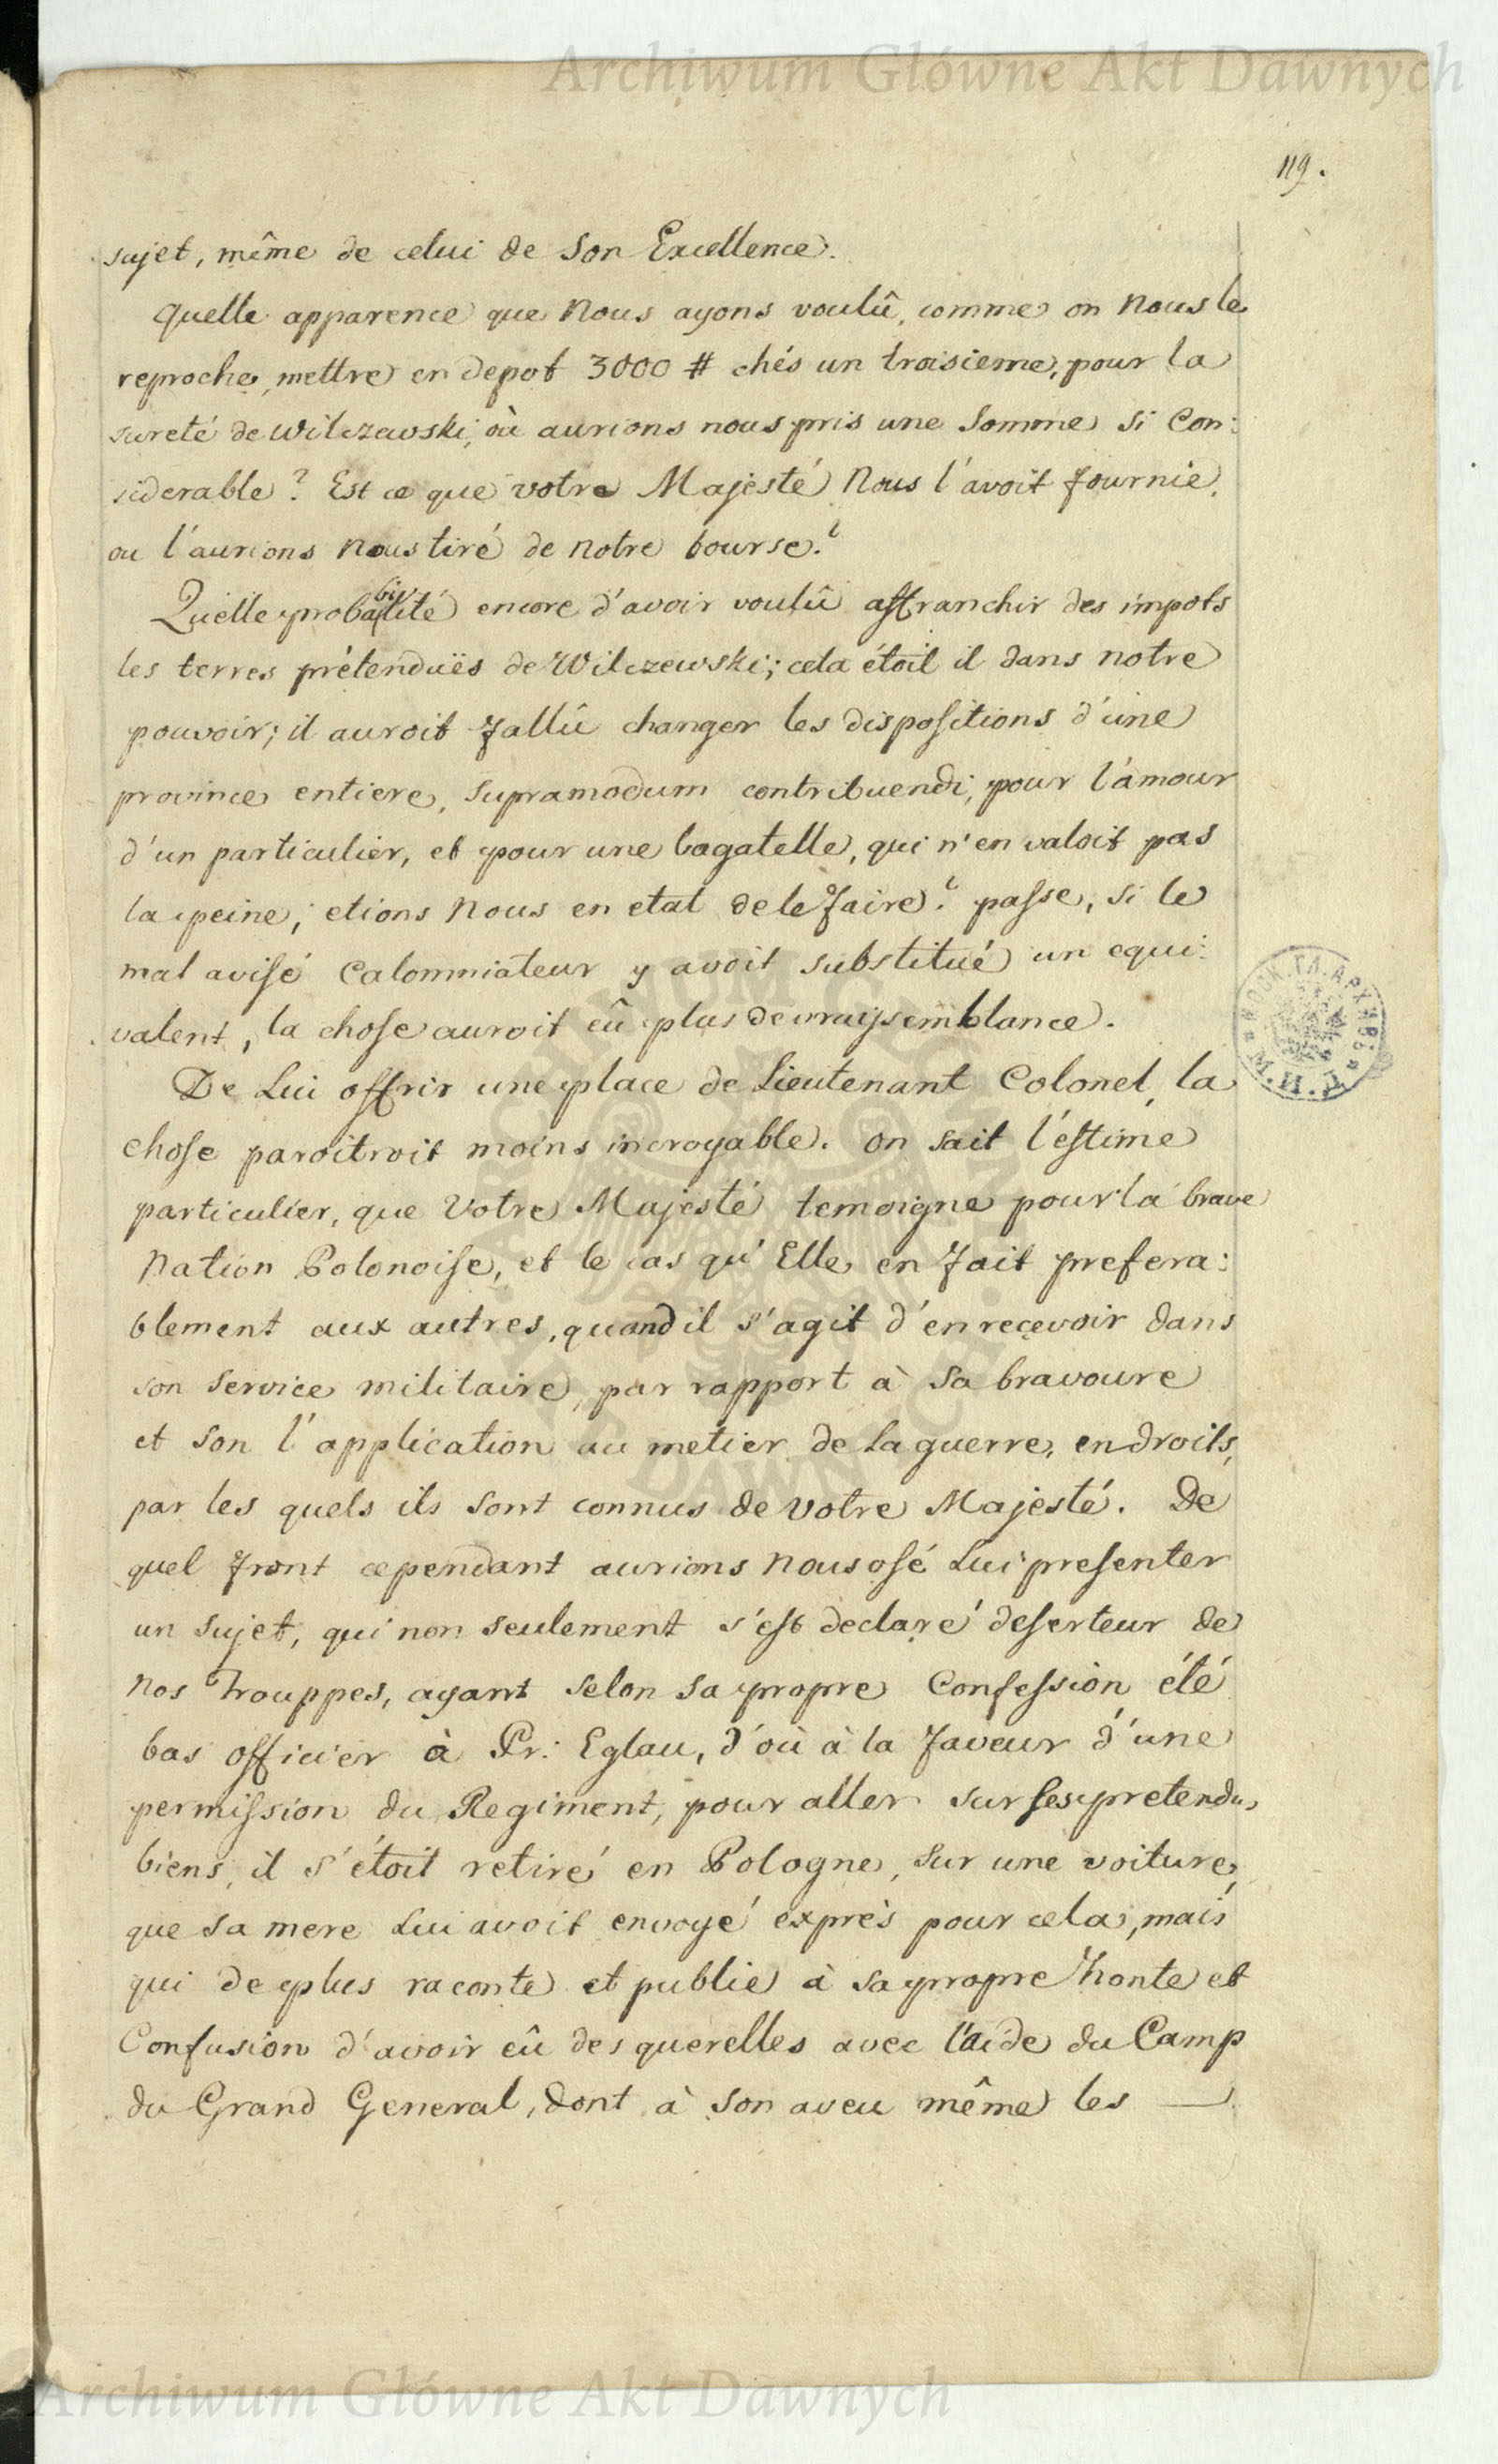 Archiwum Główne Akt Dawnych
119.
sujet, même de celui de Son Excellence.
quelle apparence que Nous ayons voulû, comme on Nous le
reproche, mettre en depot 3000 # chés un troisieme, pour la
sureté de Wilczawski, où aurions nous pris une Somme si Con:
siderable? Est ce que votre Majesté Nous l'avoit fournie,
ou l'aurions Nous tiré de Notre bourse?
Quelle probabilité encore d'avoir voulû affranchir des impots
les terres prétenduës de Wilczewski; cela étoit il dans notre
pouvoir; il auroit fallû changer les dispositions d'une
province entiere, supramodum contribuendi, pour l'amour
d'un particulier, et pour une bagatelle, qui n'en valoit pas
la peine; etions Nous en etat de le faire? passe, si le
mal avisé Calomniateur y avoit substitué un equi:
valent, la chose auroit eû plus de vraysemblance.
De Lui offrir une place de Lieutenant Colonel, la
chose paroitroit moins incroyable. on sait l'estime
particulier, que Votre Majesté temoigne pour la brave
Nation Polonoise, et le cas qu'Elle en fait prefera:
blement aux autres, quand il s'agit d'en recevoir dans
son Service militaire, par rapport à Sa bravoure
et Son l'application au metier de la guerre, endroits,
par les quels ils Sont connus de Votre Majesté. De
quel front cependant aurions Nous osé Lui presenter
un Sujet, qui non seulement s'est declaré deserteur de
Nos Trouppes, ayant selon Sa propre Confession été
bas officier à Pr: Eglau, d'où à la faveur d'une
permission du Regiment, pour aller sur ses pretendus
biens, il s'étoit retiré en Pologne, Sur une voiture,
que Sa mere Lui avoit envoyé exprès pour cela, mais
qui de plus raconte et publie à Sa propre honte et
Confusion d'avoir eû des querelles avec l'aide du Camp
du Grand General, dont à Son aveu même les —
Archiwum Główne Akt Dawnych